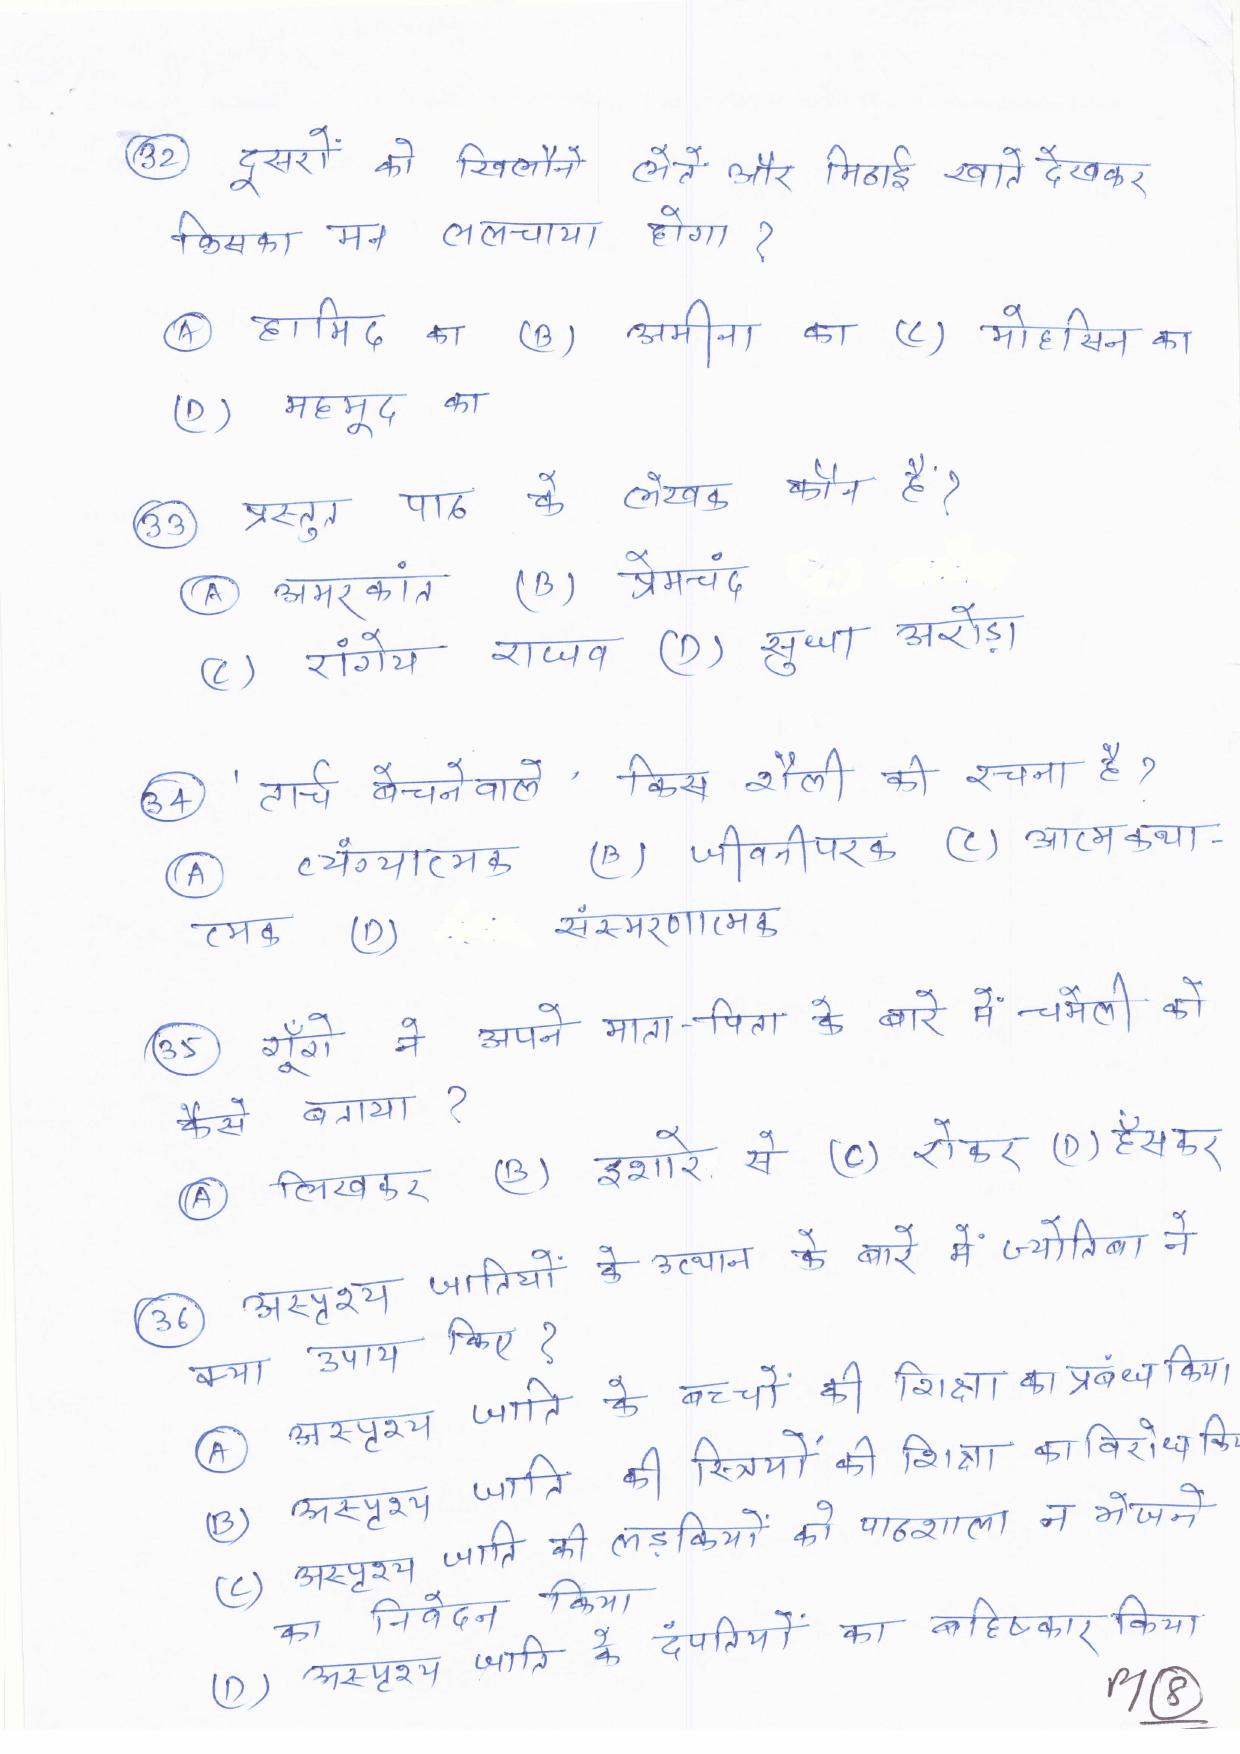 32 दूसरों को खिलौने लेते और मिठाई खाते देखकर
किसका मन ललचाया होगा ?
A हामिद का (B) अमीना का (C) मोहसिन का
(D) महमूद का
33 प्रस्तुत पाठ के लेखक कौन हैं ?
A अमरकांत (B) प्रेमचंद
(C) रांगेय राघव (D) सुधा अरोड़ा
34 'टार्च बेचनेवाले' किस शैली की रचना है ?
A व्यंग्यात्मक (B) जीवनीपरक (C) आत्मकथा-
त्मक (D) संस्मरणात्मक
35 गूँगे ने अपने माता-पिता के बारे में चमेली को
कैसे बताया ?
A लिखकर (B) इशारे से (C) रोकर (D) हँसकर
36 अस्पृश्य जातियों के उत्थान के बारे में ज्योतिबा ने
क्या उपाय किए ?
A अस्पृश्य जाति के बच्चों की शिक्षा का प्रबंध किया
(B) अस्पृश्य जाति की स्त्रियों की शिक्षा का विरोध कि
(C) अस्पृश्य जाति की लड़कियों को पाठशाला न भेजने
का निवेदन किया
(D) अस्पृश्य जाति के दंपतियों का बहिष्कार किया
8